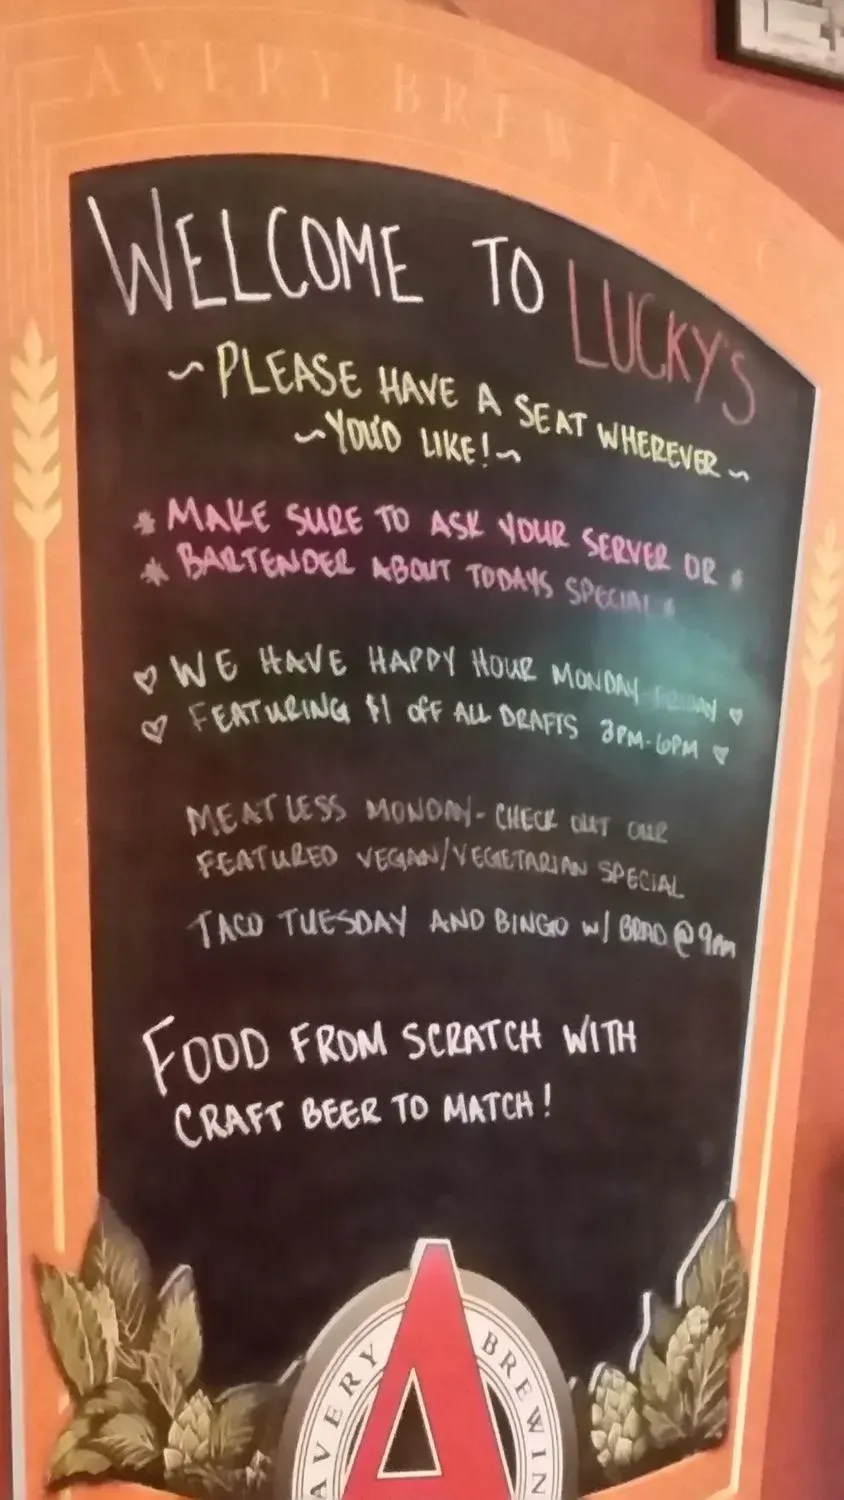 AVERY BREWING CO
WELCOME TO LUCKY'S
~PLEASE HAVE A SEAT WHEREVER~
~YOU'D LIKE!~
* MAKE SURE TO ASK YOUR SERVER OR *
* BARTENDER ABOUT TODAYS SPECIAL *
♡ WE HAVE HAPPY HOUR MONDAY-FRIDAY ♡
♡ FEATURING $1 OFF ALL DRAFTS 3PM-6PM ♡
MEATLESS MONDAY- CHECK OUT OUR
FEATURED VEGAN/VEGETARIAN SPECIAL
TACO TUESDAY AND BINGO W/ BRAD @ 9PM
FOOD FROM SCRATCH WITH
CRAFT BEER TO MATCH!
AVERY BREWIN
A